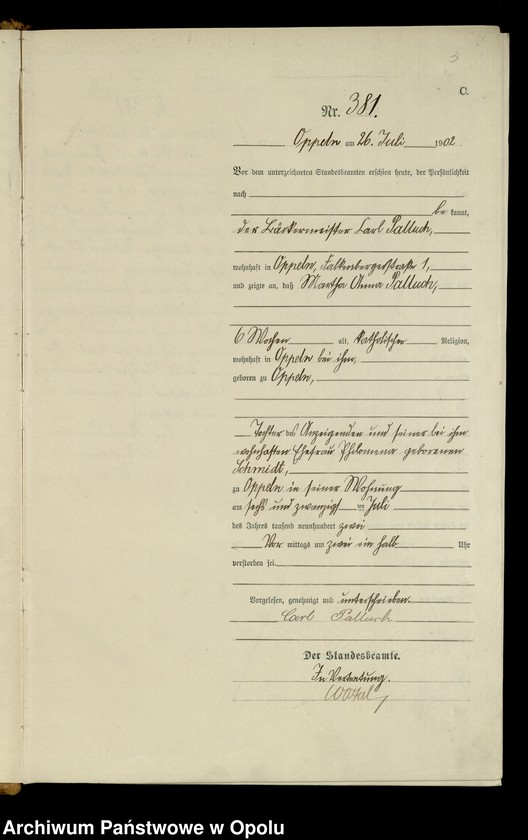 3
C.
Nr. 381.
Oppeln am 26. Juli 1902
Vor dem unterzeichneten Standesbeamten erschien heute, der Persönlichkeit
nach
be kannt,
der Bäckermeister Carl Palluch,
wohnhaft in Oppeln, Falkenbergerstraße 1,
und zeigte an, daß Martha Anna Palluch,
6 Wochen alt, katholischer Religion,
wohnhaft in Oppeln bei ihm,
geboren zu Oppeln,
Tochter des Anzeigenden und seiner bei ihm
wohnhaften Ehefrau Philomena geborenen
Schmidt,
zu Oppeln in seiner Wohnung
am sechs und zwanzigsten Juli
des Jahres tausend neunhundert zwei
Vor mittags um zwei ein halb Uhr
verstorben sei.
Vorgelesen, genehmigt und unterschrieben.
Carl Palluch
Der Standesbeamte.
In Vertretung.
Archiwum Państwowe w Opolu